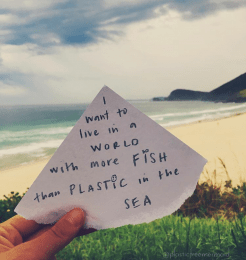 I
want to
live in a
WORLD
with more FISH
than PLASTIC in the
SEA